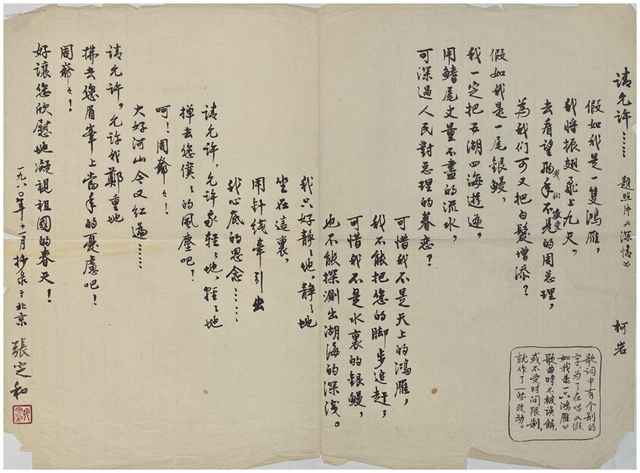 请允许…… 题照片《深情》 柯岩
假如我是一隻鴻雁，
我將振翅飛上九天，
去看望 的周总理，
為我們可又把白髮增添？
假如我是一尾银鳗
我一定把五湖四海遊遍，
用鰭尾丈量不盡的流水，
可深過人民對总理的眷恋？
可惜我不是天上的鴻雁，
我不能把您的脚步追赶，
可惜我不是水裏的银鳗，
也不能探測出湖海的深浅。
我只好静々地，静々地
坐在這裏，
用针线牵引出
我心底的思念……
请允許，允许我輕々地，輕々地
撣去您僕々的風塵吧！
呵！周爺々！
大好河山今又红遍……
请允许，允许我鄭重地
拂去您眉峯上當年的憂慮吧！
周爺々！
好讓您欣慰地凝視祖國的春天！
一九八〇年 月抄录于北京 張定和
歌词中有个别的
字，为了在唱《假
如我是一只鴻雁》
歌曲時不被误解
或不受时间限制，
就作了一些改動。